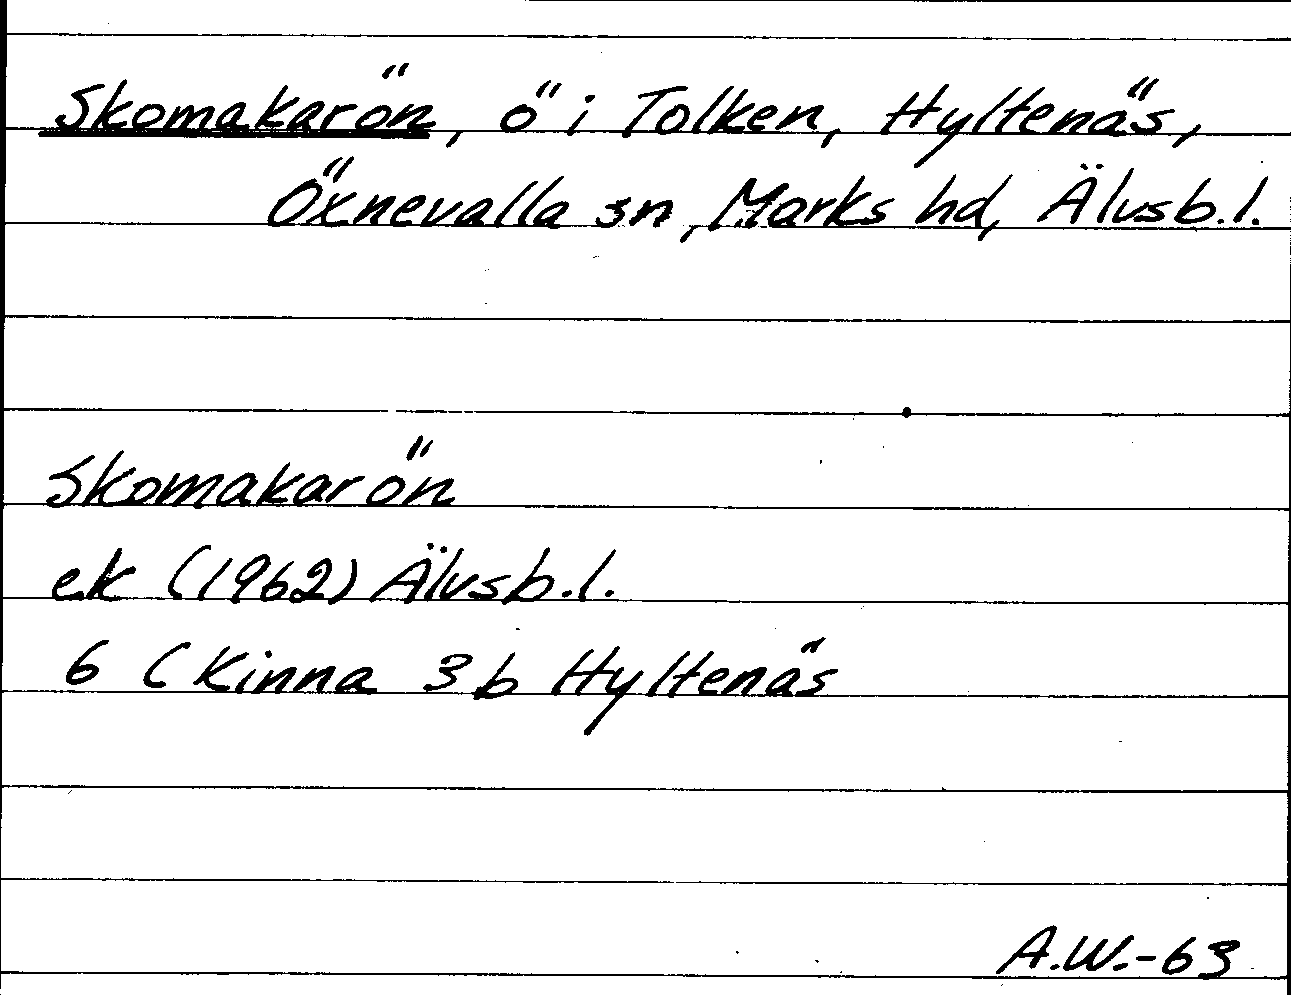 Skomakarön, ö i Tolken, Hyltenäs,
Öxnevalla sn, Marks hd, Älvsb.l.
Skomakarön
ek (1962) Älvsb.l.
6 (Kinna 3b Hyltenäs
A.W.-63